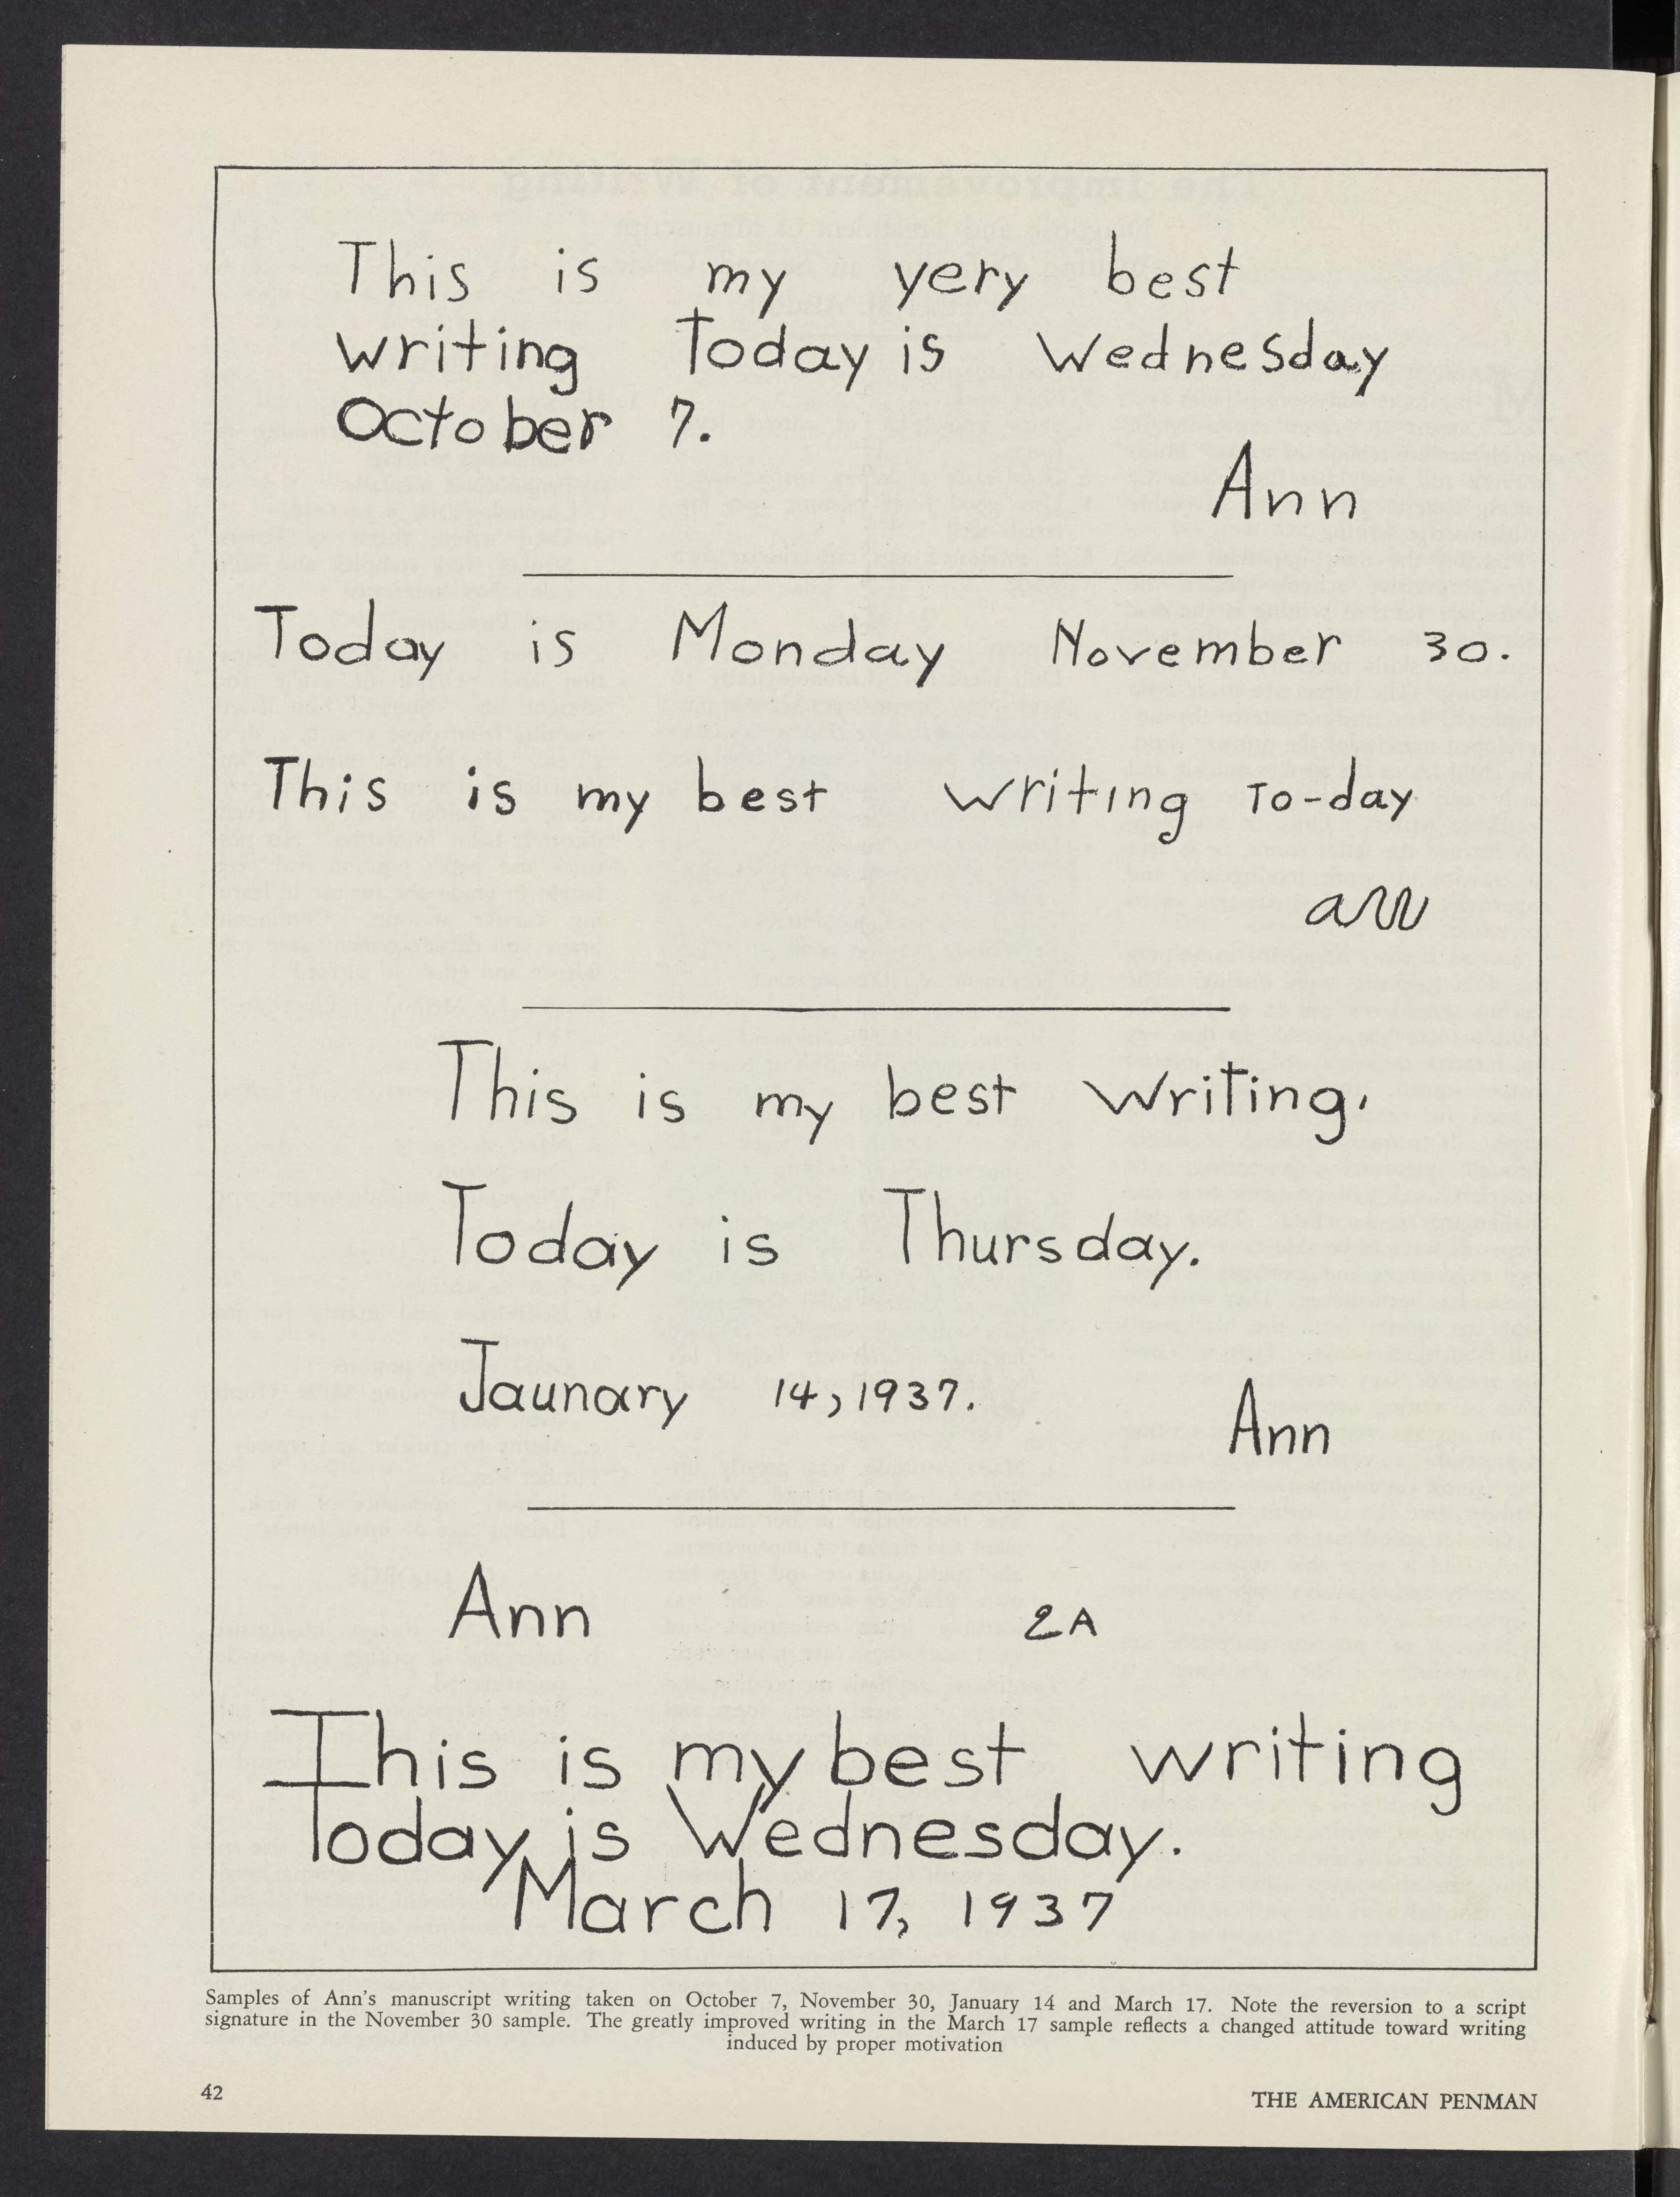 This is my yery best
writing Today is Wednesday
October 7.
Ann
Today is Monday November 30.
This is my best writing To-day
ann
This is my best writing.
Today is Thursday.
Jaunary 14, 1937.
Ann
Ann 2A
This is my best writing
Today is Wednesday.
March 17, 1937
Samples of Ann's manuscript writing taken on October 7, November 30, January 14 and March 17. Note the reversion to a script
signature in the November 30 sample. The greatly improved writing in the March 17 sample reflects a changed attitude toward writing
induced by proper motivation
42 THE AMERICAN PENMAN